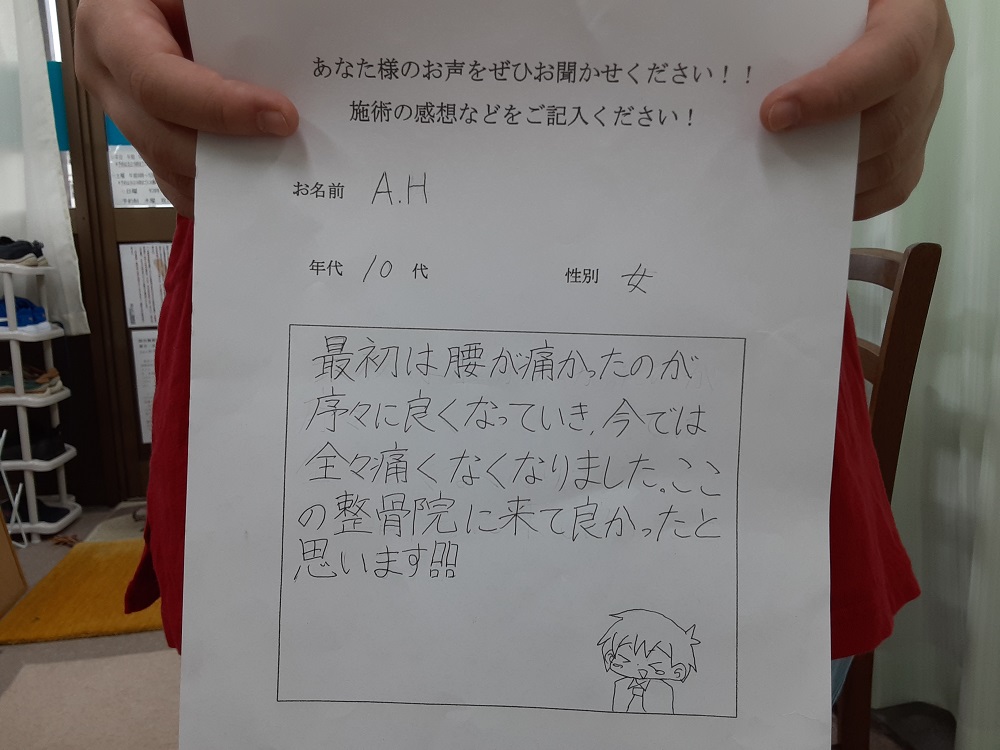 あなた様のお声をぜひお聞かせください！！
施術の感想などをご記入ください！
お名前 A.H
年代 10 代 性別 女
最初は腰が痛かったのが
序々に良くなっていき、今では
全々痛くなくなりました。ここ
の整骨院に来て良かったと
思います!!